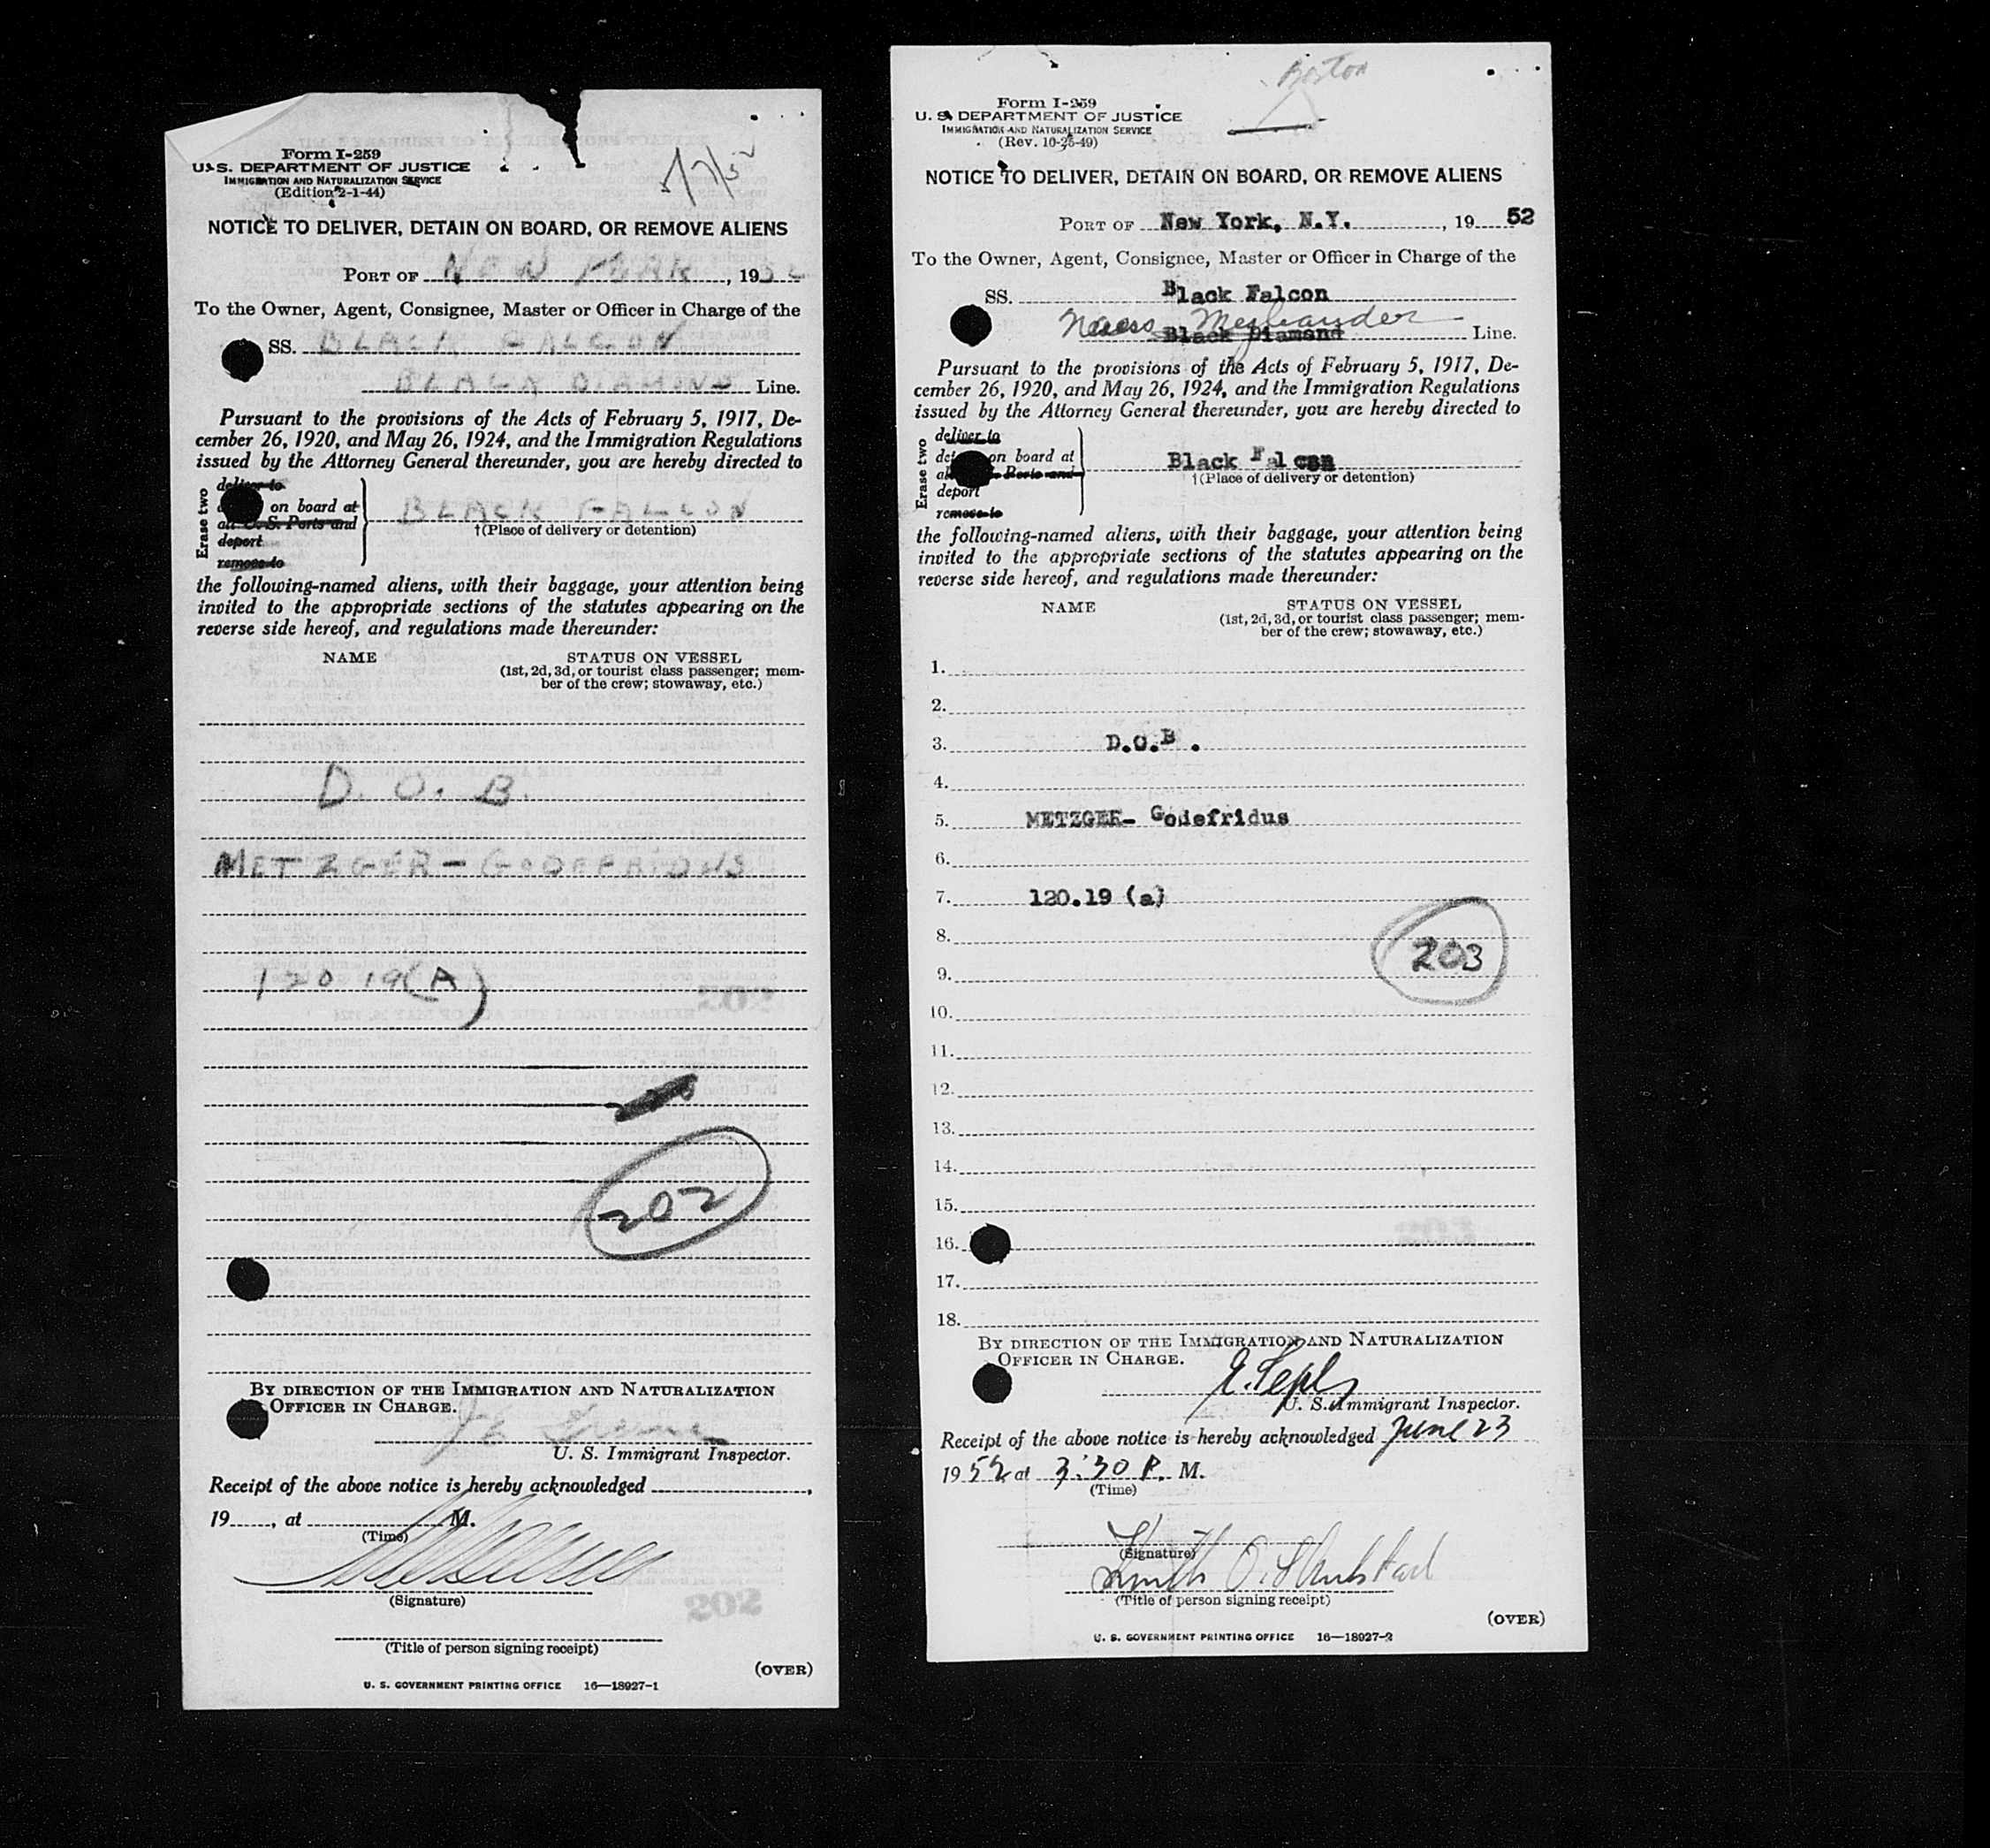 Form I-259
U. S. DEPARTMENT OF JUSTICE
IMMIGRATION AND NATURALIZATION SERVICE
(Edition 2-1-44)
NOTICE TO DELIVER, DETAIN ON BOARD, OR REMOVE ALIENS
PORT OF NEW YORK, 1952
To the Owner, Agent, Consignee, Master or Officer in Charge of the
SS. BLACK FALCON
BLACK DIAMOND Line.
Pursuant to the provisions of the Acts of February 5, 1917, De-
cember 26, 1920, and May 26, 1924, and the Immigration Regulations
issued by the Attorney General thereunder, you are hereby directed to
Erase two
deliver to
on board at
all U. S. Ports and
deport
remove to
BLACK FALCON
†(Place of delivery or detention)
the following-named aliens, with their baggage, your attention being
invited to the appropriate sections of the statutes appearing on the
reverse side hereof, and regulations made thereunder:
NAME STATUS ON VESSEL
(1st, 2d, 3d, or tourist class passenger; mem-
ber of the crew; stowaway, etc.)
D. O. B.
METZGER - GODEFRIDUS
120 19(A)
202
BY DIRECTION OF THE IMMIGRATION AND NATURALIZATION
OFFICER IN CHARGE.
U. S. Immigrant Inspector.
Receipt of the above notice is hereby acknowledged
19 , at M.
(Time)
(Signature)
202
(Title of person signing receipt)
(OVER)
U. S. GOVERNMENT PRINTING OFFICE 16—18927-1
Boston
Form I-259
U. S. DEPARTMENT OF JUSTICE
IMMIGRATION AND NATURALIZATION SERVICE
(Rev. 10-25-49)
NOTICE TO DELIVER, DETAIN ON BOARD, OR REMOVE ALIENS
PORT OF New York, N.Y., 19 52
To the Owner, Agent, Consignee, Master or Officer in Charge of the
SS. Black Falcon
Black Diamond Line.
Pursuant to the provisions of the Acts of February 5, 1917, De-
cember 26, 1920, and May 26, 1924, and the Immigration Regulations
issued by the Attorney General thereunder, you are hereby directed to
Erase two
deliver to
on board at
Ports and
deport
remove to
Black Falcon
†(Place of delivery or detention)
the following-named aliens, with their baggage, your attention being
invited to the appropriate sections of the statutes appearing on the
reverse side hereof, and regulations made thereunder:
NAME STATUS ON VESSEL
(1st, 2d, 3d, or tourist class passenger; mem-
ber of the crew; stowaway, etc.)
1.
2.
3. D.O.B.
4.
5. METZGER- Godefridus
6.
7. 120.19 (a)
8.
203
9.
10.
11.
12.
13.
14.
15.
16.
17.
18.
BY DIRECTION OF THE IMMIGRATION AND NATURALIZATION
OFFICER IN CHARGE.
U. S. Immigrant Inspector.
Receipt of the above notice is hereby acknowledged June 23
1952 at 3:30 P. M.
(Time)
(Signature)
(Title of person signing receipt)
(OVER)
U. S. GOVERNMENT PRINTING OFFICE 16—18927-2